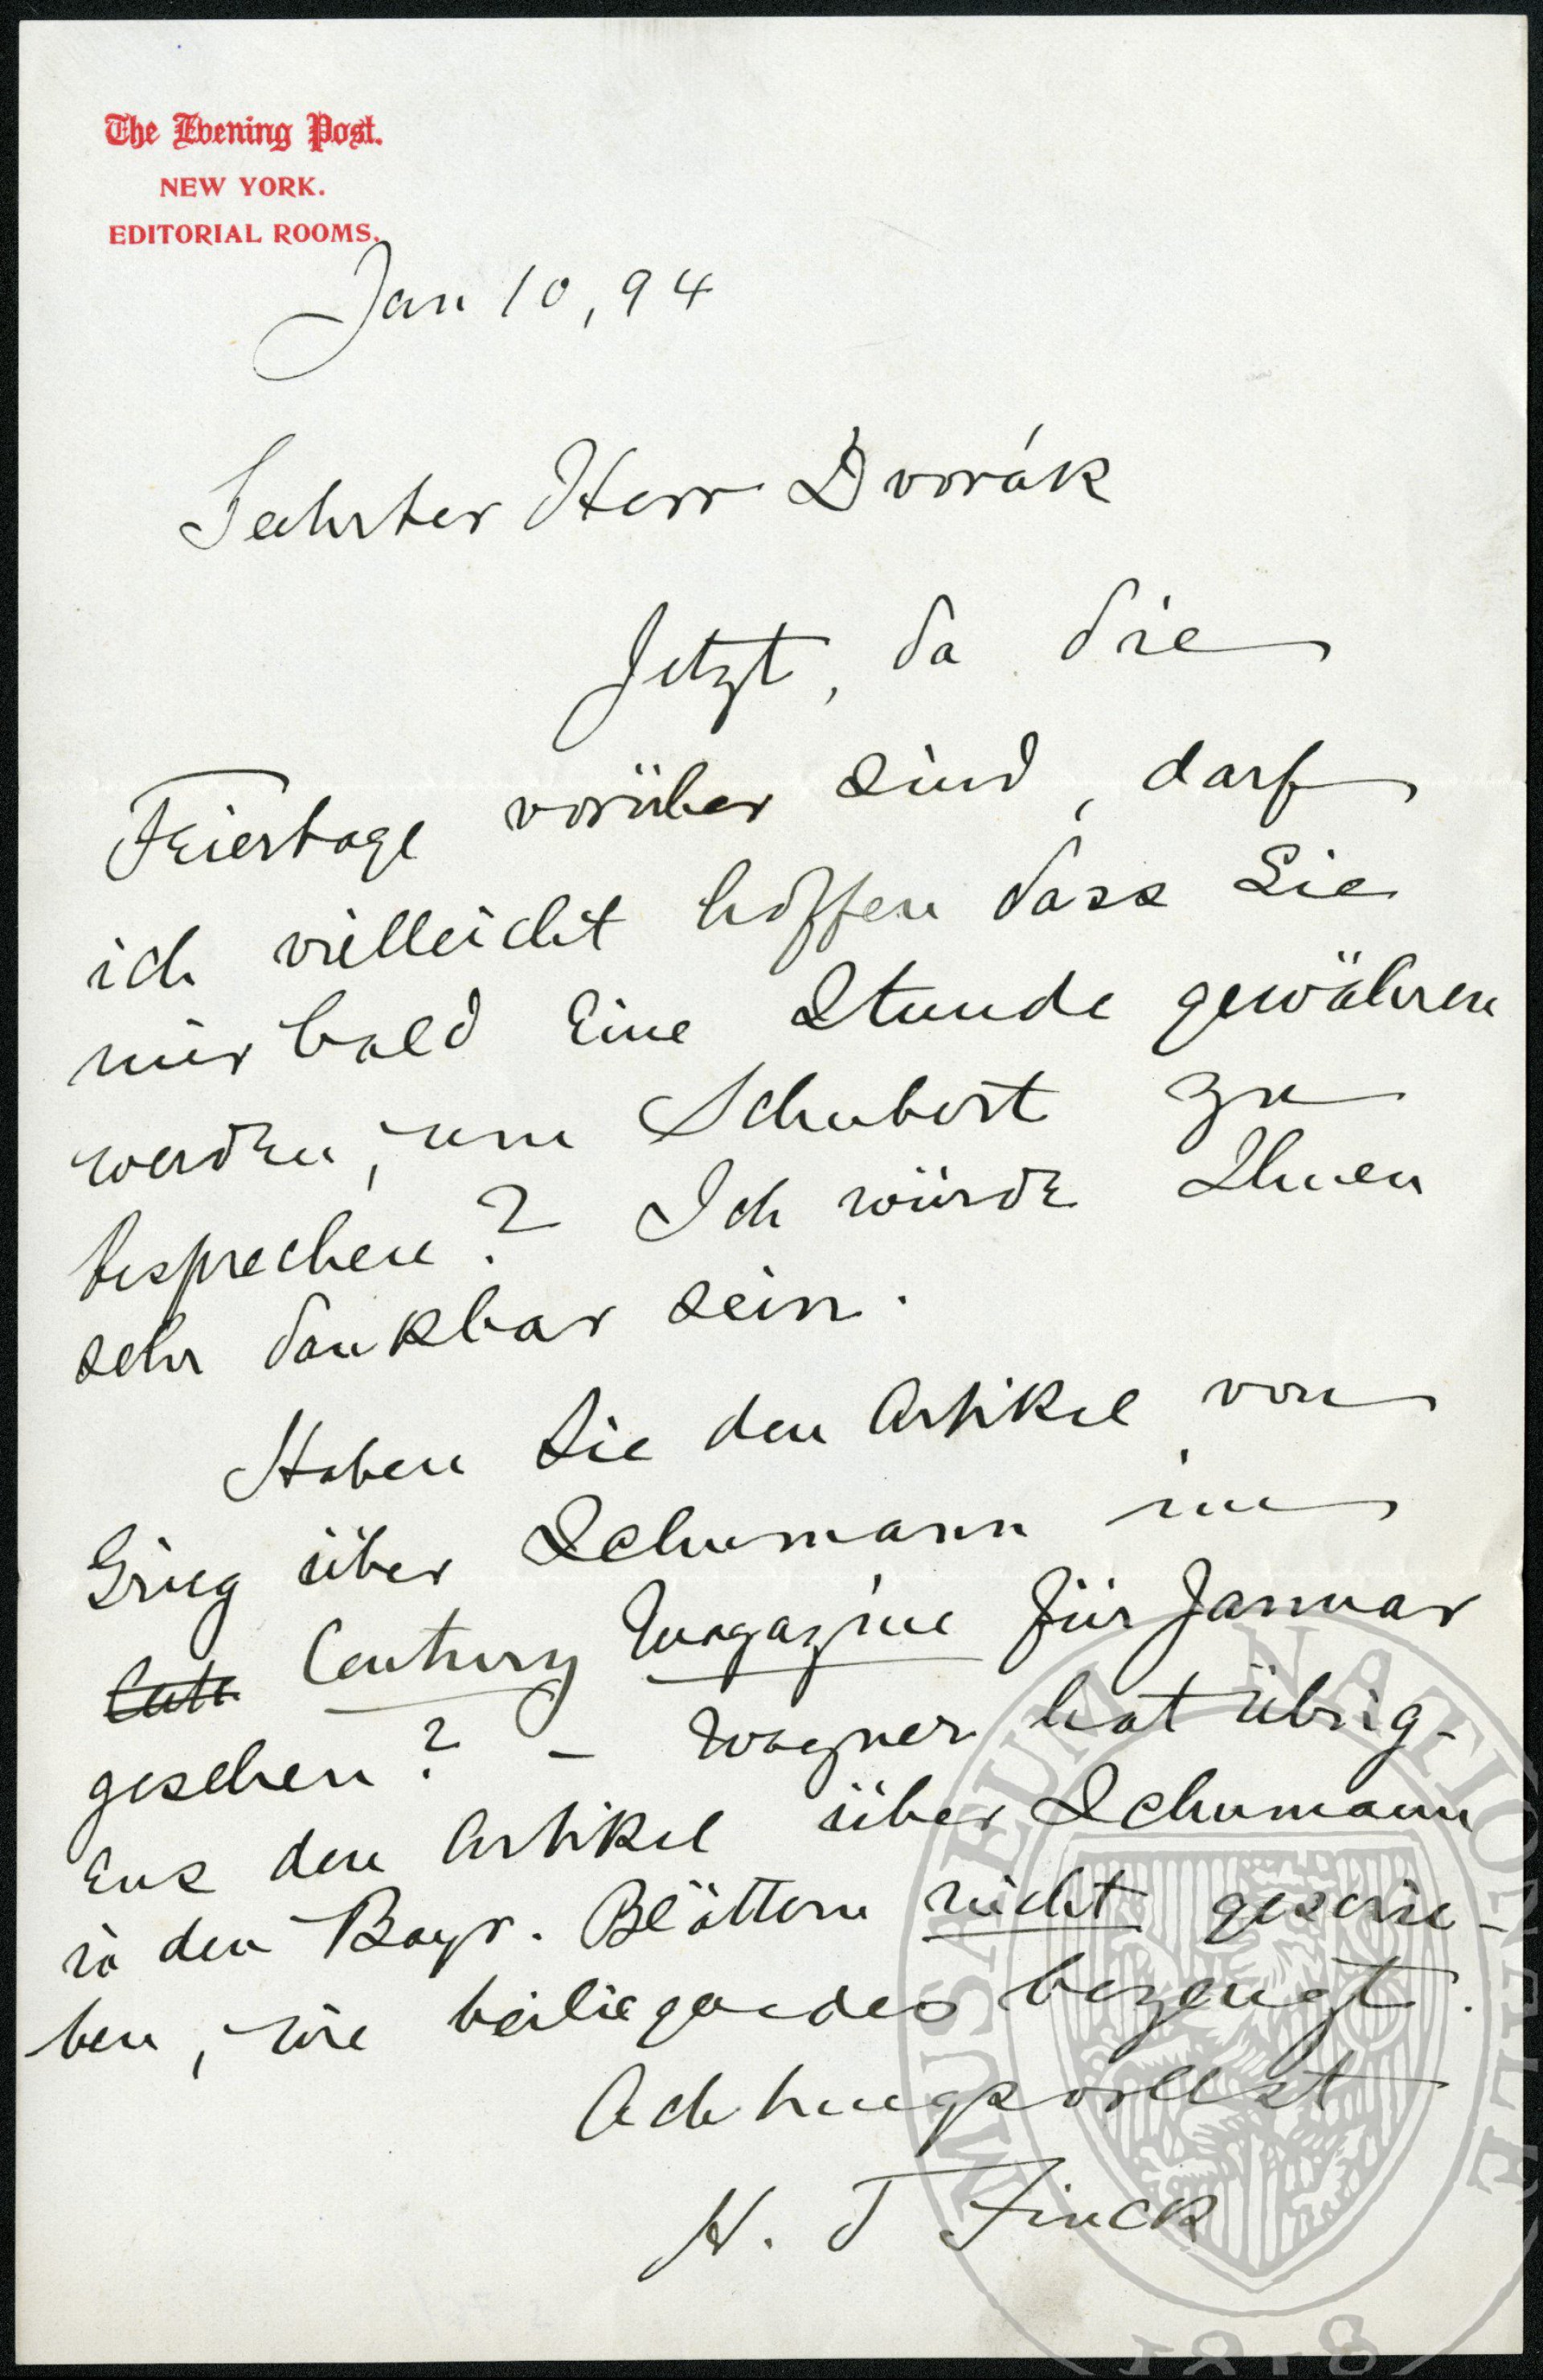 The Evening Post.
NEW YORK.
EDITORIAL ROOMS.
Jan 10, 94
Geehrter Herr Dvorák
Jetzt, da die
Feiertage vorüber sind, darf
ich vielleicht hoffen dass Sie
mir bald eine Stunde gewähren
werden, um Schubert zu
besprechen? Ich würde Ihnen
sehr dankbar sein.
Haben Sie den Artikel von
Grieg über Schumann im
Century Magazine für Januar
gesehen? – Wagner hat übrig-
ens den Artikel über Schumann
in den Bayr. Blättern nicht geschrie-
ben, wie beiliegendes bezeugt.
Achtungsvollst
H. T Finck
MUSAEUM NATIONALE
1818